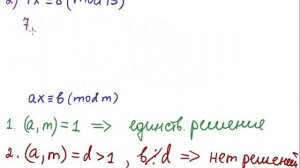 2) x ≡ (mod
7
ax ≡ b (mod m)
1. (a, m) = 1 ⇒ единств. решение
2. (a, m) = d > 1 , b ⋮̸ d ⇒ нет решений